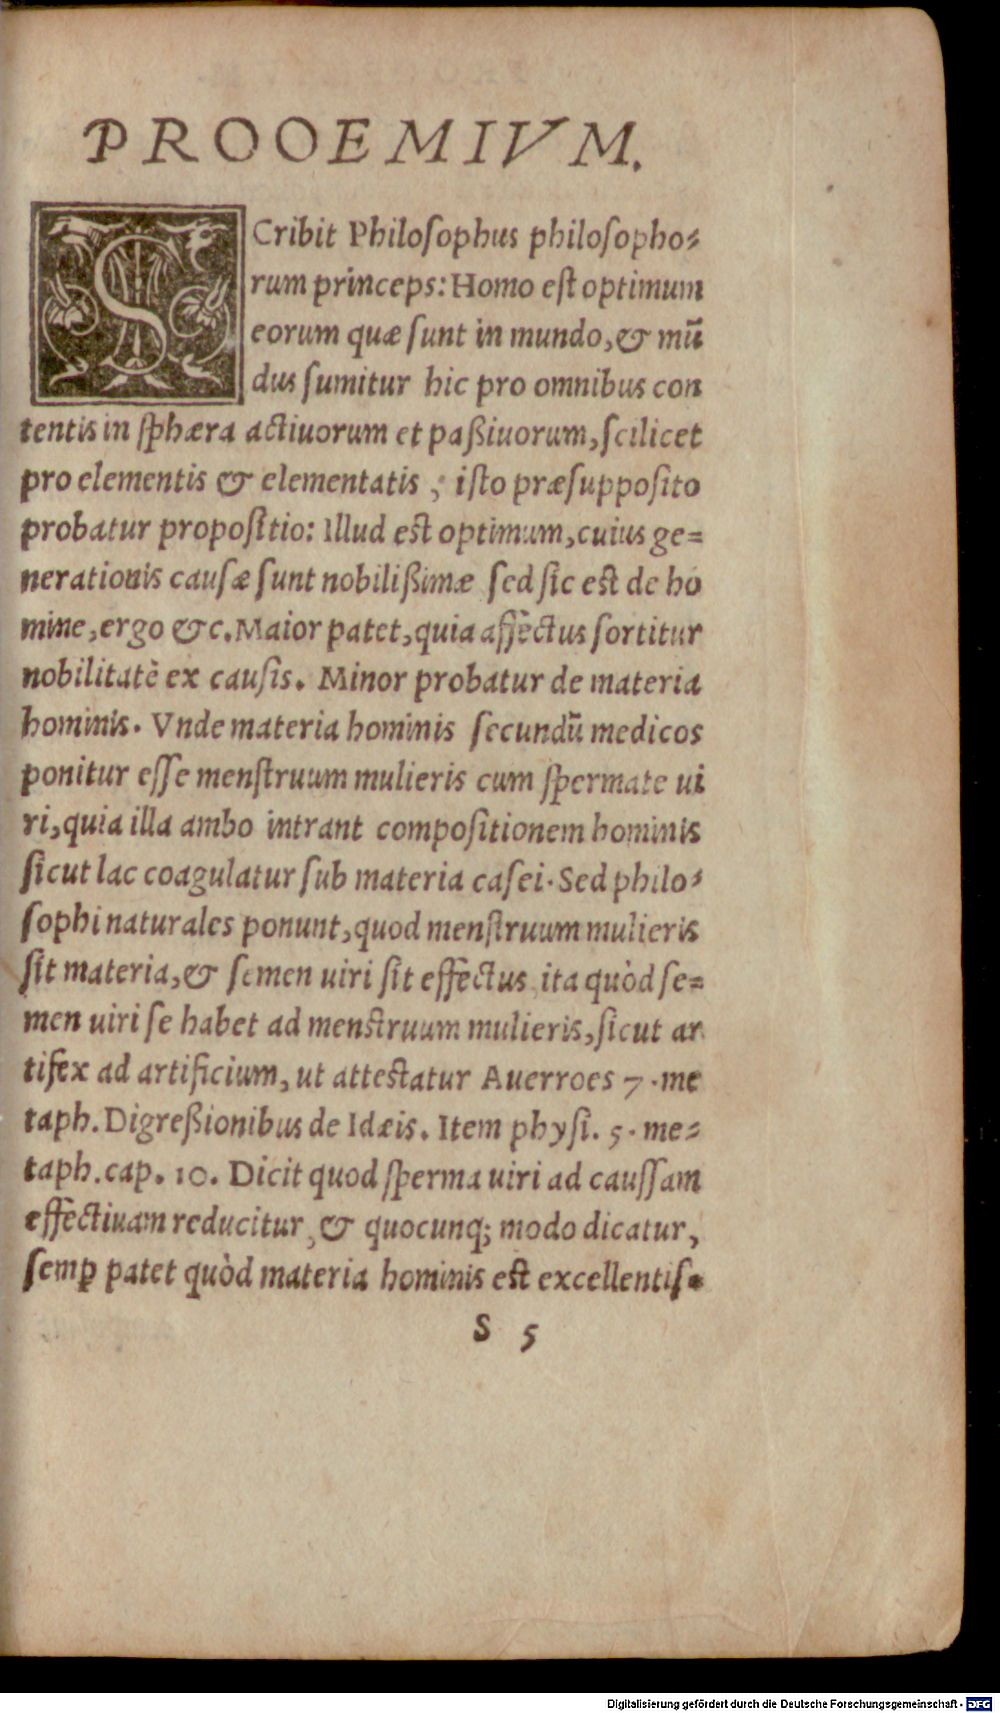 PROOEMIVM.
SCribit Philoſophus philoſopho-
rum princeps: Homo eſt optimum
eorum quæ ſunt in mundo, & mū
dus ſumitur hic pro omnibus con
tentis in ſphæra actiuorum et paßiuorum, ſcilicet
pro elementis & elementatis, iſto præſuppoſito
probatur propoſitio: Illud eſt optimum, cuius ge=
nerationis cauſæ ſunt nobilißimæ ſed ſic eſt de ho
mine, ergo &c. Maior patet, quia affectus ſortitur
nobilitatē ex cauſis. Minor probatur de materia
hominis. Vnde materia hominis ſecundū medicos
ponitur eſſe menſtruum mulieris cum ſpermate ui
ri, quia illa ambo intrant compoſitionem hominis
ſicut lac coagulatur ſub materia caſei. Sed philo-
ſophi naturales ponunt, quod menſtruum mulieris
ſit materia, & ſemen uiri ſit effectus, ita quòd ſe=
men uiri ſe habet ad menſtruum mulieris, ſicut ar
tifex ad artificium, ut atteſtatur Auerroes 7. me
taph. Digreßionibus de Idæis. Item phyſi. 5. me-
taph. cap. 10. Dicit quod ſperma uiri ad cauſſam
effectiuam reducitur, & quocunq; modo dicatur,
ſemꝑ patet quòd materia hominis eſt excellentiſ-
S 5
Digitalisierung gefördert durch die Deutsche Forschungsgemeinschaft - DFG